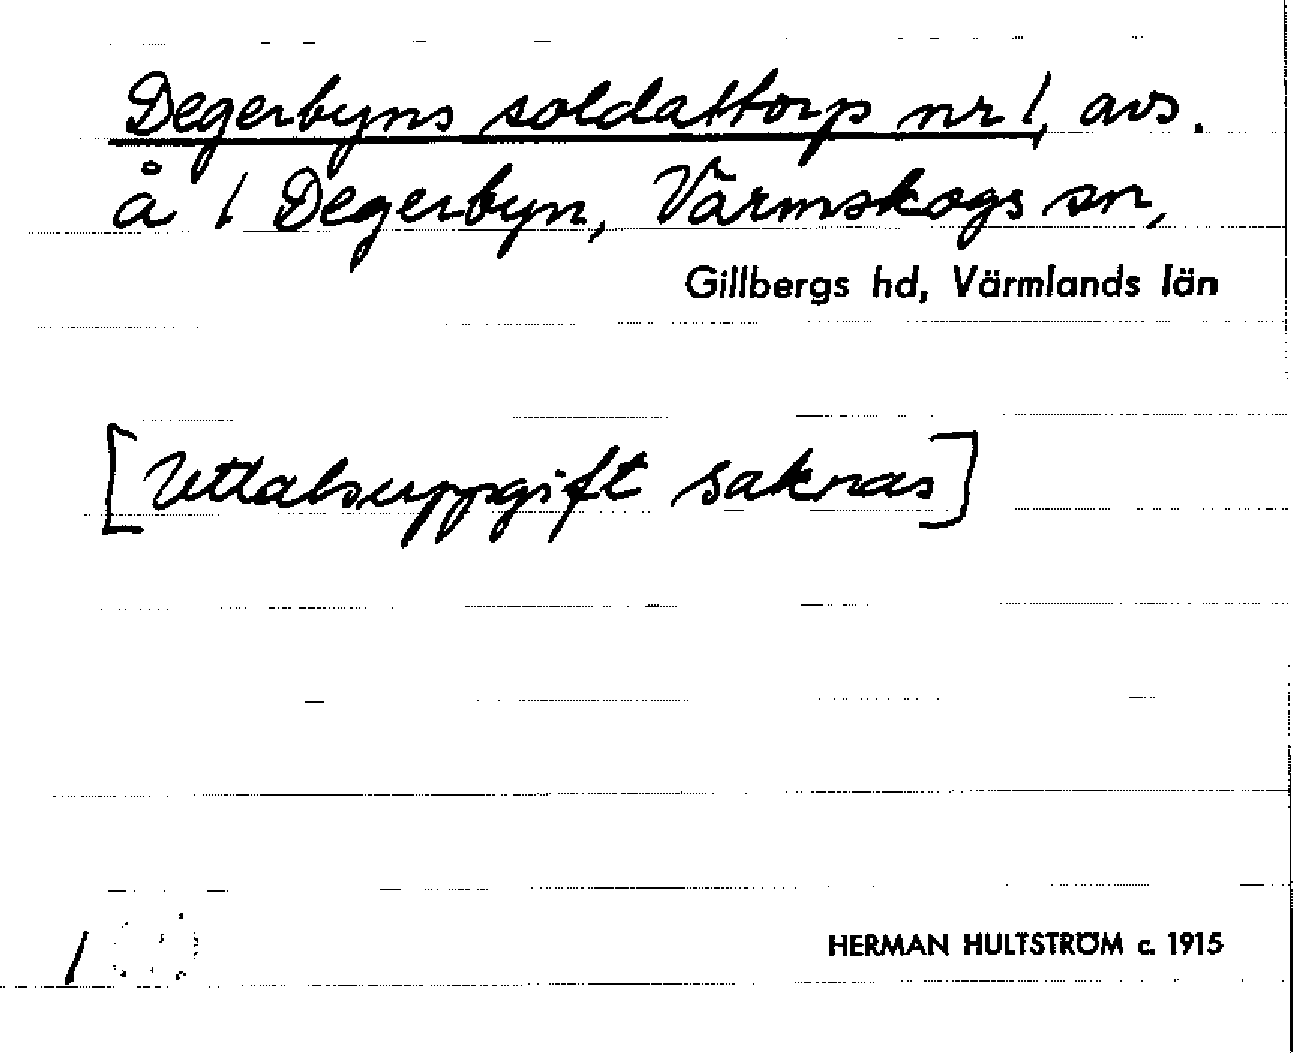 Degerbyns soldattorp nr 1, avs.
å 1 Degerbyn, Värmskogs sn,
Gillbergs hd, Värmlands län
[Uttalsuppgift saknas]
1
HERMAN HULTSTRÖM c. 1915